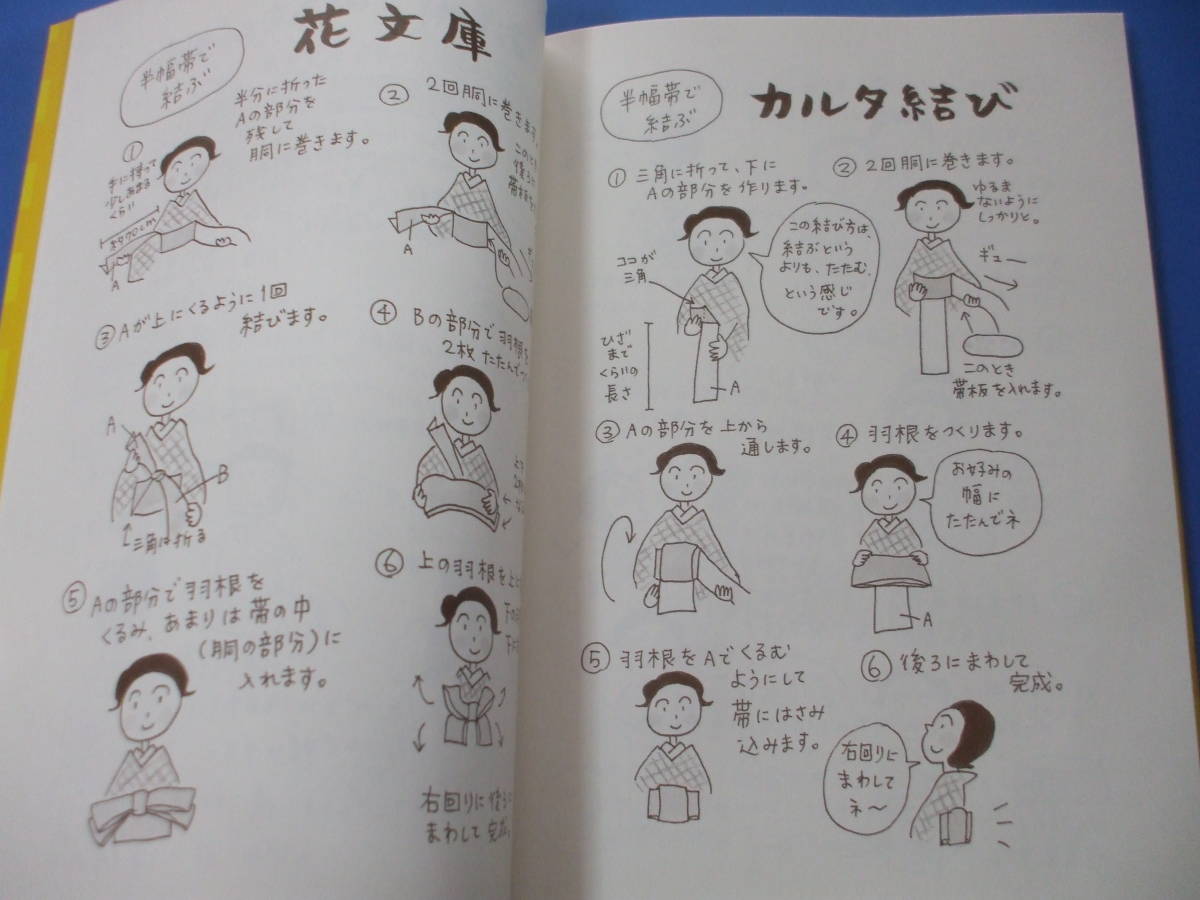 花文庫
半幅帯で
結ぶ
①
半分に折った
Aの部分を
残して
胴に巻きます。
手に持って
少しあまる
くらい
A
②
2回胴に巻きます
このと
後ろに
帯板を
A
③Aが上にくるように1回
結びます。
A
B
三角に折る
④
Bの部分で羽根を
2枚たたんで
⑤Aの部分で羽根を
くるみ、あまりは帯の中
(胴の部分)に
入れます。
⑥上の羽根を上に
右回りに後ろに
まわして完成。
半幅帯で
結ぶ
カルタ結び
①三角に折って、下に
Aの部分を作ります。
この結び方は、
結ぶという
よりも、たたむ、
という感じ
です。
ココが
三角
ひざ
まで
くらいの
長さ
A
②2回胴に巻きます。
ゆるま
ないように
しっかりと。
ギュー
このとき
帯板を入れます。
③Aの部分を上から
通します。
④羽根をつくります。
お好みの
幅に
たたんでネ
A
⑤羽根をAでくるむ
ようにして
帯にはさみ
込みます。
⑥後ろにまわして
完成。
右回りに
まわして
ネ〜